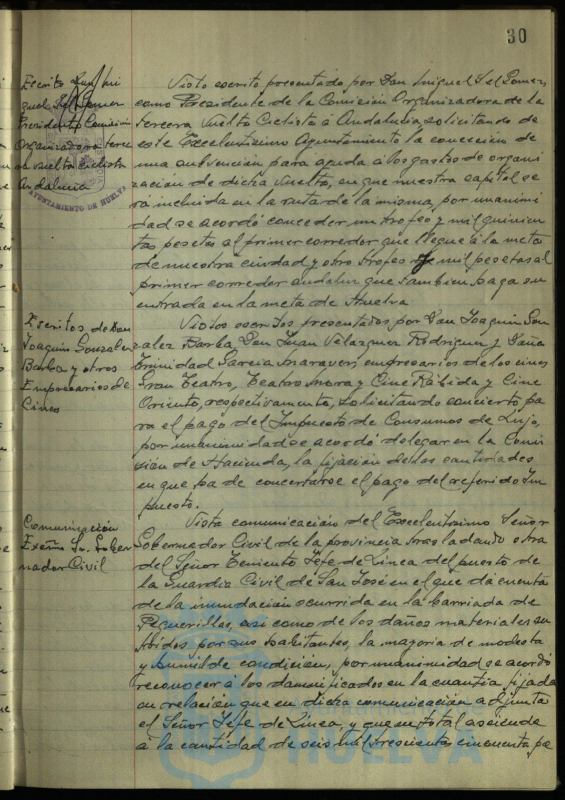 30
Escrito Don Mi
guel Gomez
Presidente Comisión
Organizadora terce
ra vuelta ciclista
Andalucia
AYUNTAMIENTO DE HUELVA
Visto escrito presentado por Don Miguel Gomez,
como Presidente de la Comisión Organizadora de la
tercera Vuelta Ciclista á Andalucia, solicitando de
este Excelentisimo Ayuntamiento la concesión de
una subvención para ayuda á los gastos de organi
zación de dicha Vuelta, en que nuestra capital se
ra incluida en la ruta de la misma, por unanimi
dad se acordó conceder un trofeo y mil quinien
tas pesetas al primer corredor que llegue á la meta
de nuestra ciudad y otro trofeo y mil pesetas al
primer corredor andaluz que tambien haga su
entrada en la meta de Huelva.
Escritos de Don
Joaquin Gonzalez
Barba y otros
Empresarios de
Cines
Vistos escritos presentados por Don Joaquin Gon
zalez Barba, Don Juan Velazquez Rodriguez y Doña
Trinidad Garcia Naraver, empresarios de los cines
Gran Teatro, Teatro Mora y Cine Rábida y Cine
Oriente, respectivamente, solicitando concierto pa
ra el pago del Impuesto de Consumos de Lujo,
por unanimidad se acordó delegar en la Comi
sión de Hacienda, la fijación de las cantidades
en que ha de concertarse el pago del referido Im
puesto.
Comunicación
Excmo Sr. Gober
nador Civil
Vista comunicación del Excelentisimo Señor
Gobernador Civil de la provincia trasladando otra
del Señor Teniente Jefe de Linea del puesto de
la Guardia Civil de San José en el que dá cuenta
de la inundación ocurrida en la barriada de
Peguerillas, asi como de los daños materiales su
fridos por sus habitantes, la mayoria de modesta
y humilde condición, por unanimidad se acordó
reconocer á los damnificados en la cuantia fijada
en relación que en dicha comunicación adjunta
el Señor Jefe de Linea, y que en total asciende
á la cantidad de seis mil trescientas cincuenta pe
HUELVA